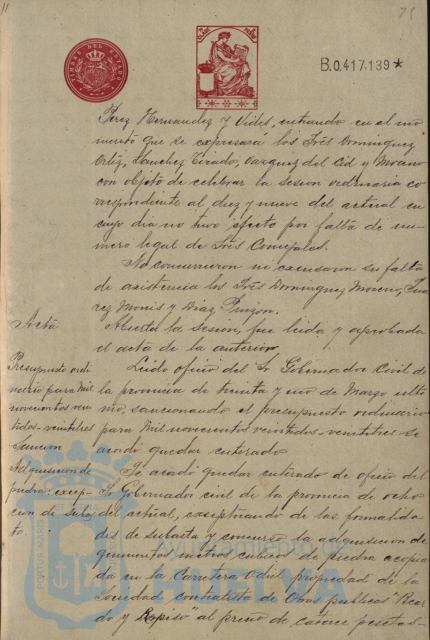 11
TIMBRE DEL ESTADO
B.0.417,139*
Perez Hernandez y Vides, entrando en el mo
mento que se expresará los Sres Dominguez
Ortiz, Sanchez Tirado, Vazquez del Cid y Moreno
con objeto de celebrar la sesion ordinaria co
rrespondiente al diez y nueve del actual en
cuyo dia no tuvo efecto por falta de nu-
mero legal de Sres Concejales.
No concurrieron ni excusaron su falta
de asistencia los Sres Dominguez Moreno, Sua
rez Monis y Diaz Pinzon.
Acta
Abierta la sesion, fue leida y aprobada
el acta de la anterior.
Presupuesto ordi
nario para Mil
novecientos vein
tidos-veintitres
Sancion
Leido oficio del Sr Gobernador Civil de
la provincia de treinta y uno de Marzo ulti
mo, sancionando el presupuesto ordinario
para Mil novecientos veintidos-veintitres se
acordó quedar enterado
Adquisicion de
piedra: excep-
cion de subas
ta.
Se acordó quedar enterado de oficio del
Sr Gobernador civil de la provincia de ocho
del actual, exceptuando de las formalida
des de subasta y concurso la adquisicion de
quinientos metros cubicos de piedra acopia
da en la Carretera Odiel propiedad de la
Sociedad contratista de Obras publicas "Recar
do y Repiso" al precio de catorce pesetas-
Ayuntamiento de
HUELVA